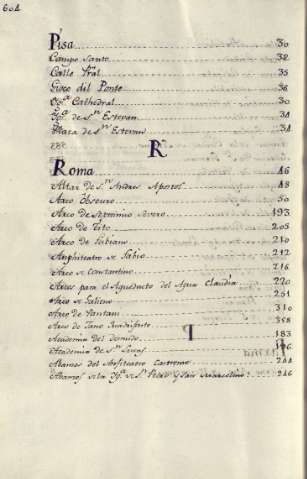 604
Pisa 30
Campo Santo 32
Calle Pral 35
Gioco del Ponte 36
Ygª Cathedral 30
Ygª de Sⁿ Estevan 34
Plaza de Sⁿ Estevan 34
R
Roma 46
Altar de Sⁿ Andres Apostol 48
Arco Obscuro 50
Arco de Septimio Severo 193
Arco de Tito 205
Arco de Fabiano 210
Amphiteatro de 212
Arco de Constantino 216
Arcos para el Aqueducto del Agua Claudia 220
Arco de Galieno 251
Arco de Pantani 310
Arco de Jano Quadrifonte 358
Academia del 183
Academia de Sⁿ Lucas 196
del Anfiteatro Castrense 244
de la Ygª de Sⁿ Pedro y San Marcelino 246